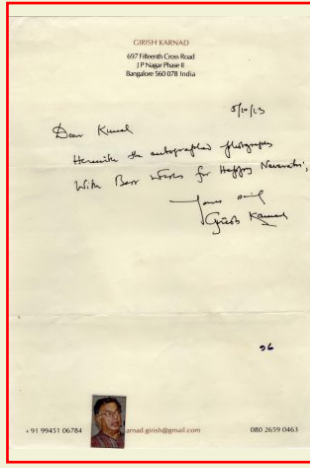 GIRISH KARNAD
697 Fifteenth Cross Road
J P Nagar Phase II
Bangalore 560 078 India
5/10/13
Dear Kumal
Herewith the autographed photograph
With Best Wishes for Happy Navaratri,
Yours
Girish Karnad
+91 99451 06784
arnad.girish@gmail.com
080 2659 0463